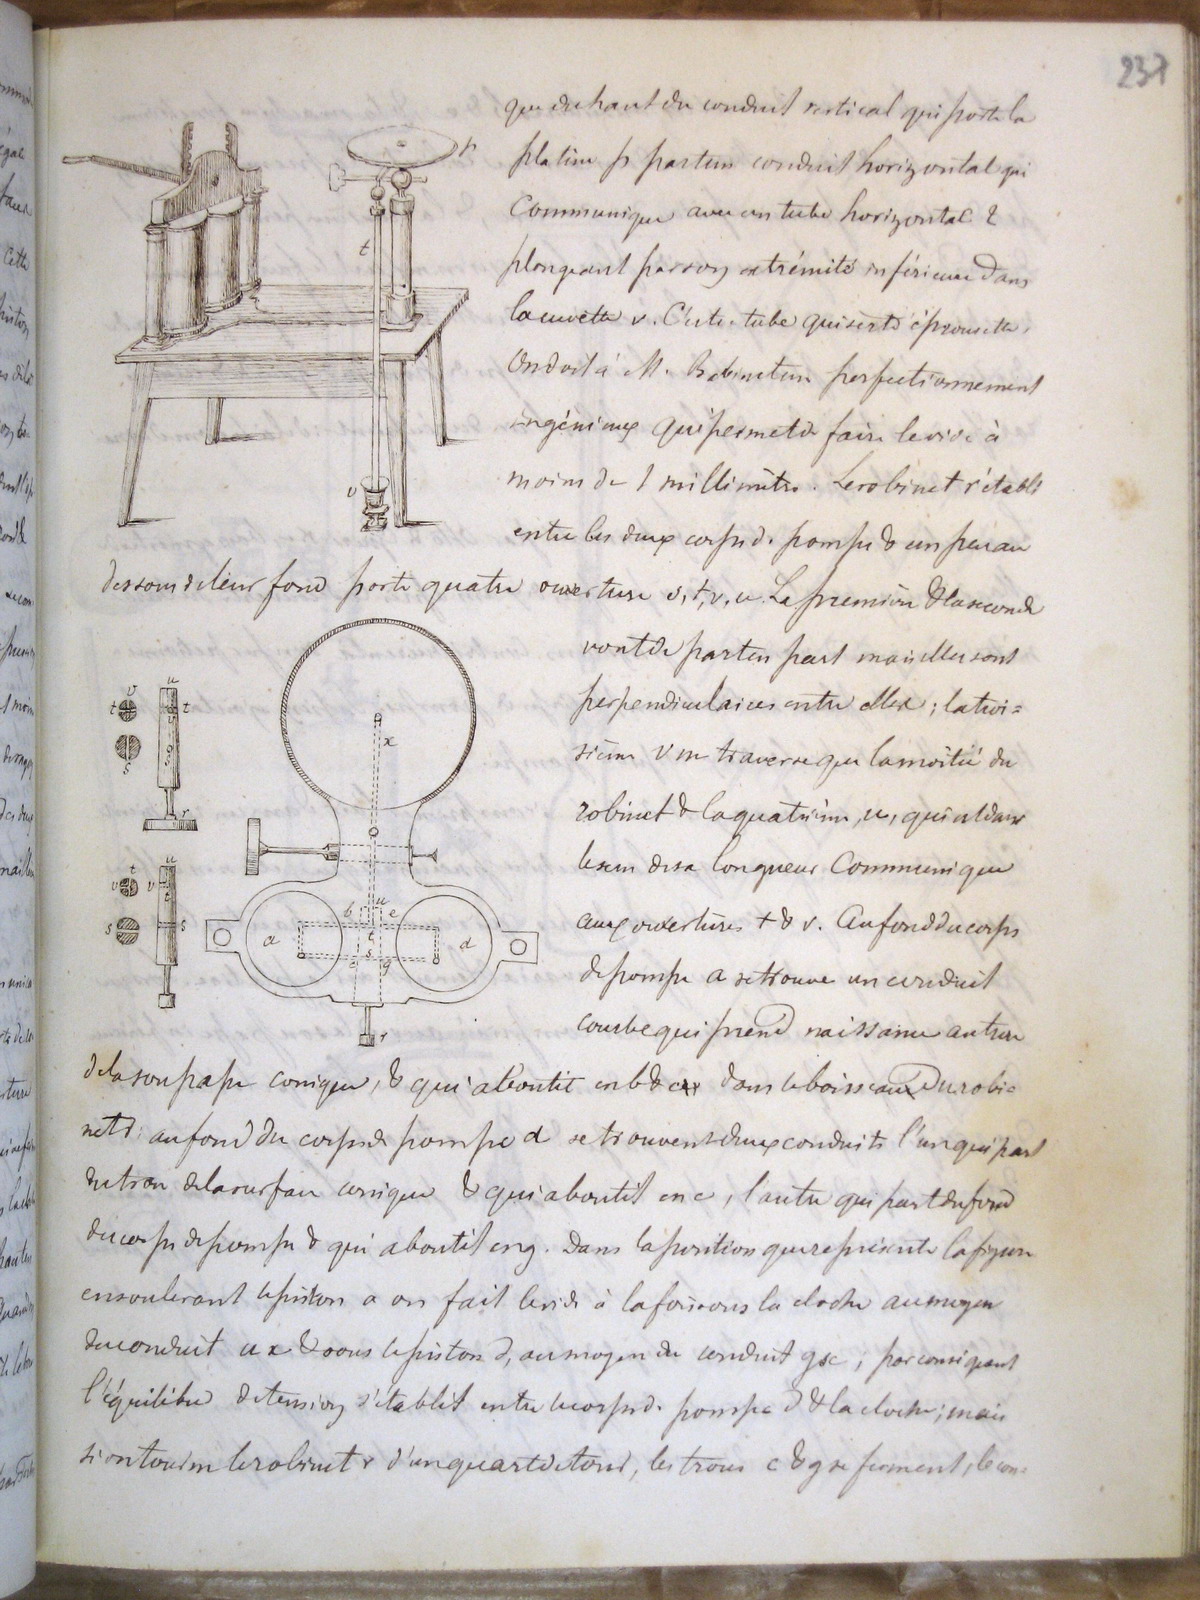 237
que du haut du conduit vertical qui porte la
platine p part un conduit horizontal qui
communique avec un tube horizontal t
plongeant par son extrémité inférieure dans
la cuvette v. C'est ce tube qui sert d'éprouvette.
On doit à M. Babinet un perfectionnement
ingénieux qui permet de faire le vide à
moins de 1 millimètre. Le robinet r établi
entre les deux corps de pompe & un peu au
dessous de leur fond porte quatre ouverture s, t, v, u. La première & la seconde
vont de part en part mais elles sont
perpendiculaires entre elles ; la troi=
sième v ne traverse que la moitié du
robinet & la quatrième, u, qui est dans
le sens de sa longueur communique
aux ouvertures t & v. Au fond du corps
de pompe a se trouve un conduit
courbe qui prend naissance au trou
de la soupape conique, & qui aboutit en b & dans le boisseau du robi=
net r ; au fond du corps de pompe d se trouvent deux conduits l'un qui part
du trou de la surface conique & qui aboutit en c, l'autre qui part du fond
du corps de pompe & qui aboutit en g. Dans la position que représente la figure
en soulevant le piston a on fait le vide à la fois sous la cloche au moyen
du conduit u x & sous le piston d, au moyen du conduit gsc ; par conséquent
l'équilibre de tension s'établit entre le corps de pompe d & la cloche ; mais
si on tourne le robinet r d'un quart de tour, les trous c & g se ferment, le con=
p
t
v
v
u
t
t
s
r
x
u
v
t
v
t
s
s
b
u
e
a
t
d
s
g
r